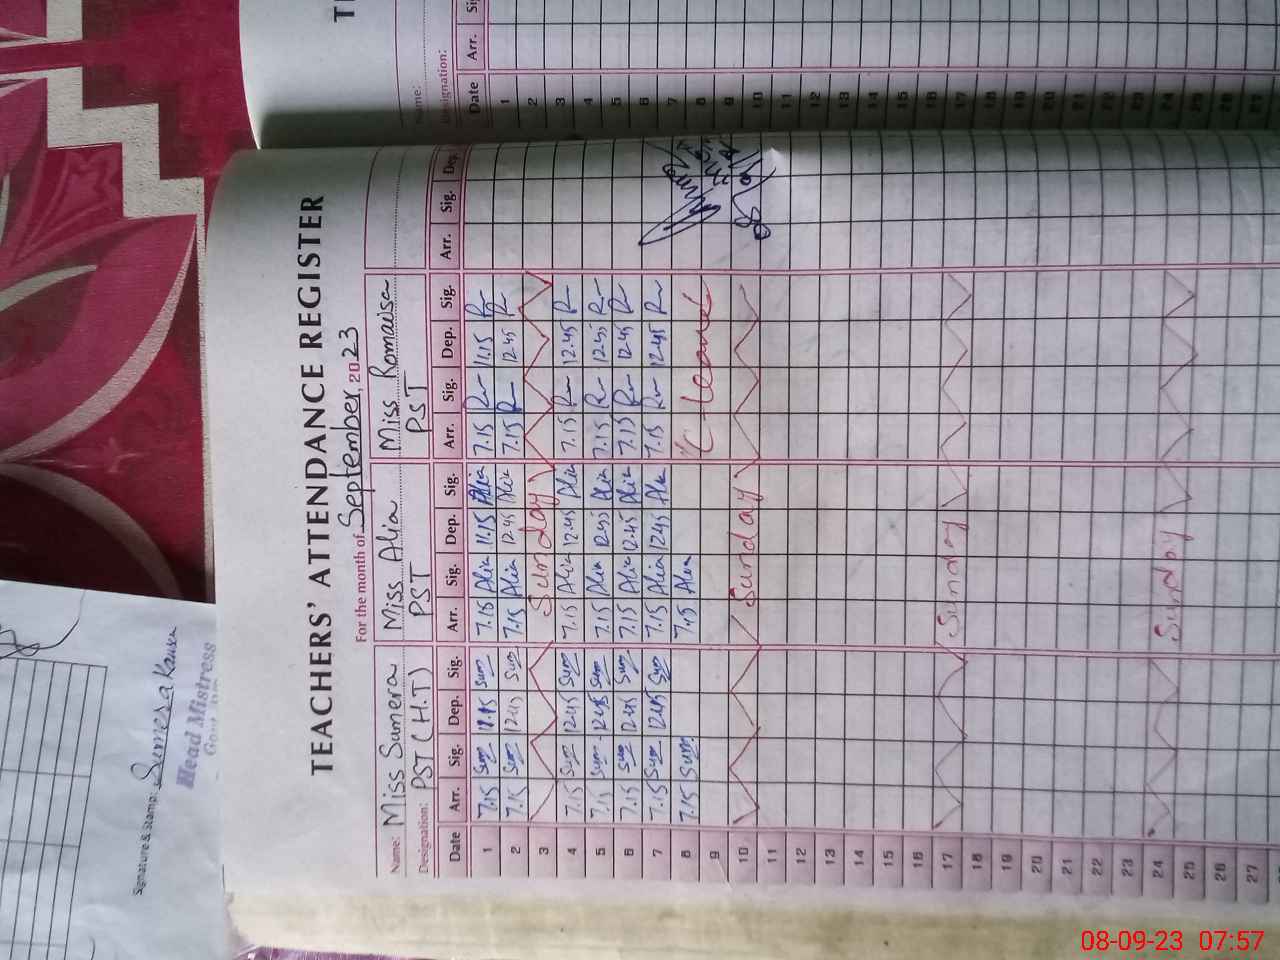 TEACHERS' ATTENDANCE REGISTER
For the month of September, 2023
Name: Miss Sumera Miss Alia Miss Romaisa
Designation: PST (H.T) PST PST
Date Arr. Sig. Dep. Sig. Arr. Sig. Dep. Sig. Arr. Sig. Dep. Sig. Arr. Sig. Dep.
1 7.15 Sum 11.15 Sum 7.15 Alia 11.15 Alia 7.15 Rm 11.15 Rm
2 7.15 Sum 12.45 Sum 7.15 Alia 12.45 Alia 7.15 Rm 12.45 Rm
3 Sunday
4 7.15 Sum 12.45 Sum 7.15 Alia 12.45 Alia 7.15 Rm 12.45 Rm
5 7.15 Sum 12.45 Sum 7.15 Alia 12.45 Alia 7.15 Rm 12.45 Rm
6 7.15 Sum 12.45 Sum 7.15 Alia 12.45 Alia 7.15 Rm 12.45 Rm
7 7.15 Sum 12.45 Sum 7.15 Alia 12.45 Alia 7.15 Rm 12.45 Rm
8 7.15 Sum 7.15 Alia C-leave
9
10 Sunday
11
12
13
14
15
16
17 Sunday
18
19
20
21
22
23
24 Sunday
25
26
27
Name:
Designation:
Date Arr.
1
2
3
4
5
6
7
8
9
10
11
12
13
14
15
16
17
18
19
20
21
22
23
24
25
26
27
Signature & Stamp: Sumera Kausar
Head Mistress
08-09-23 07:57